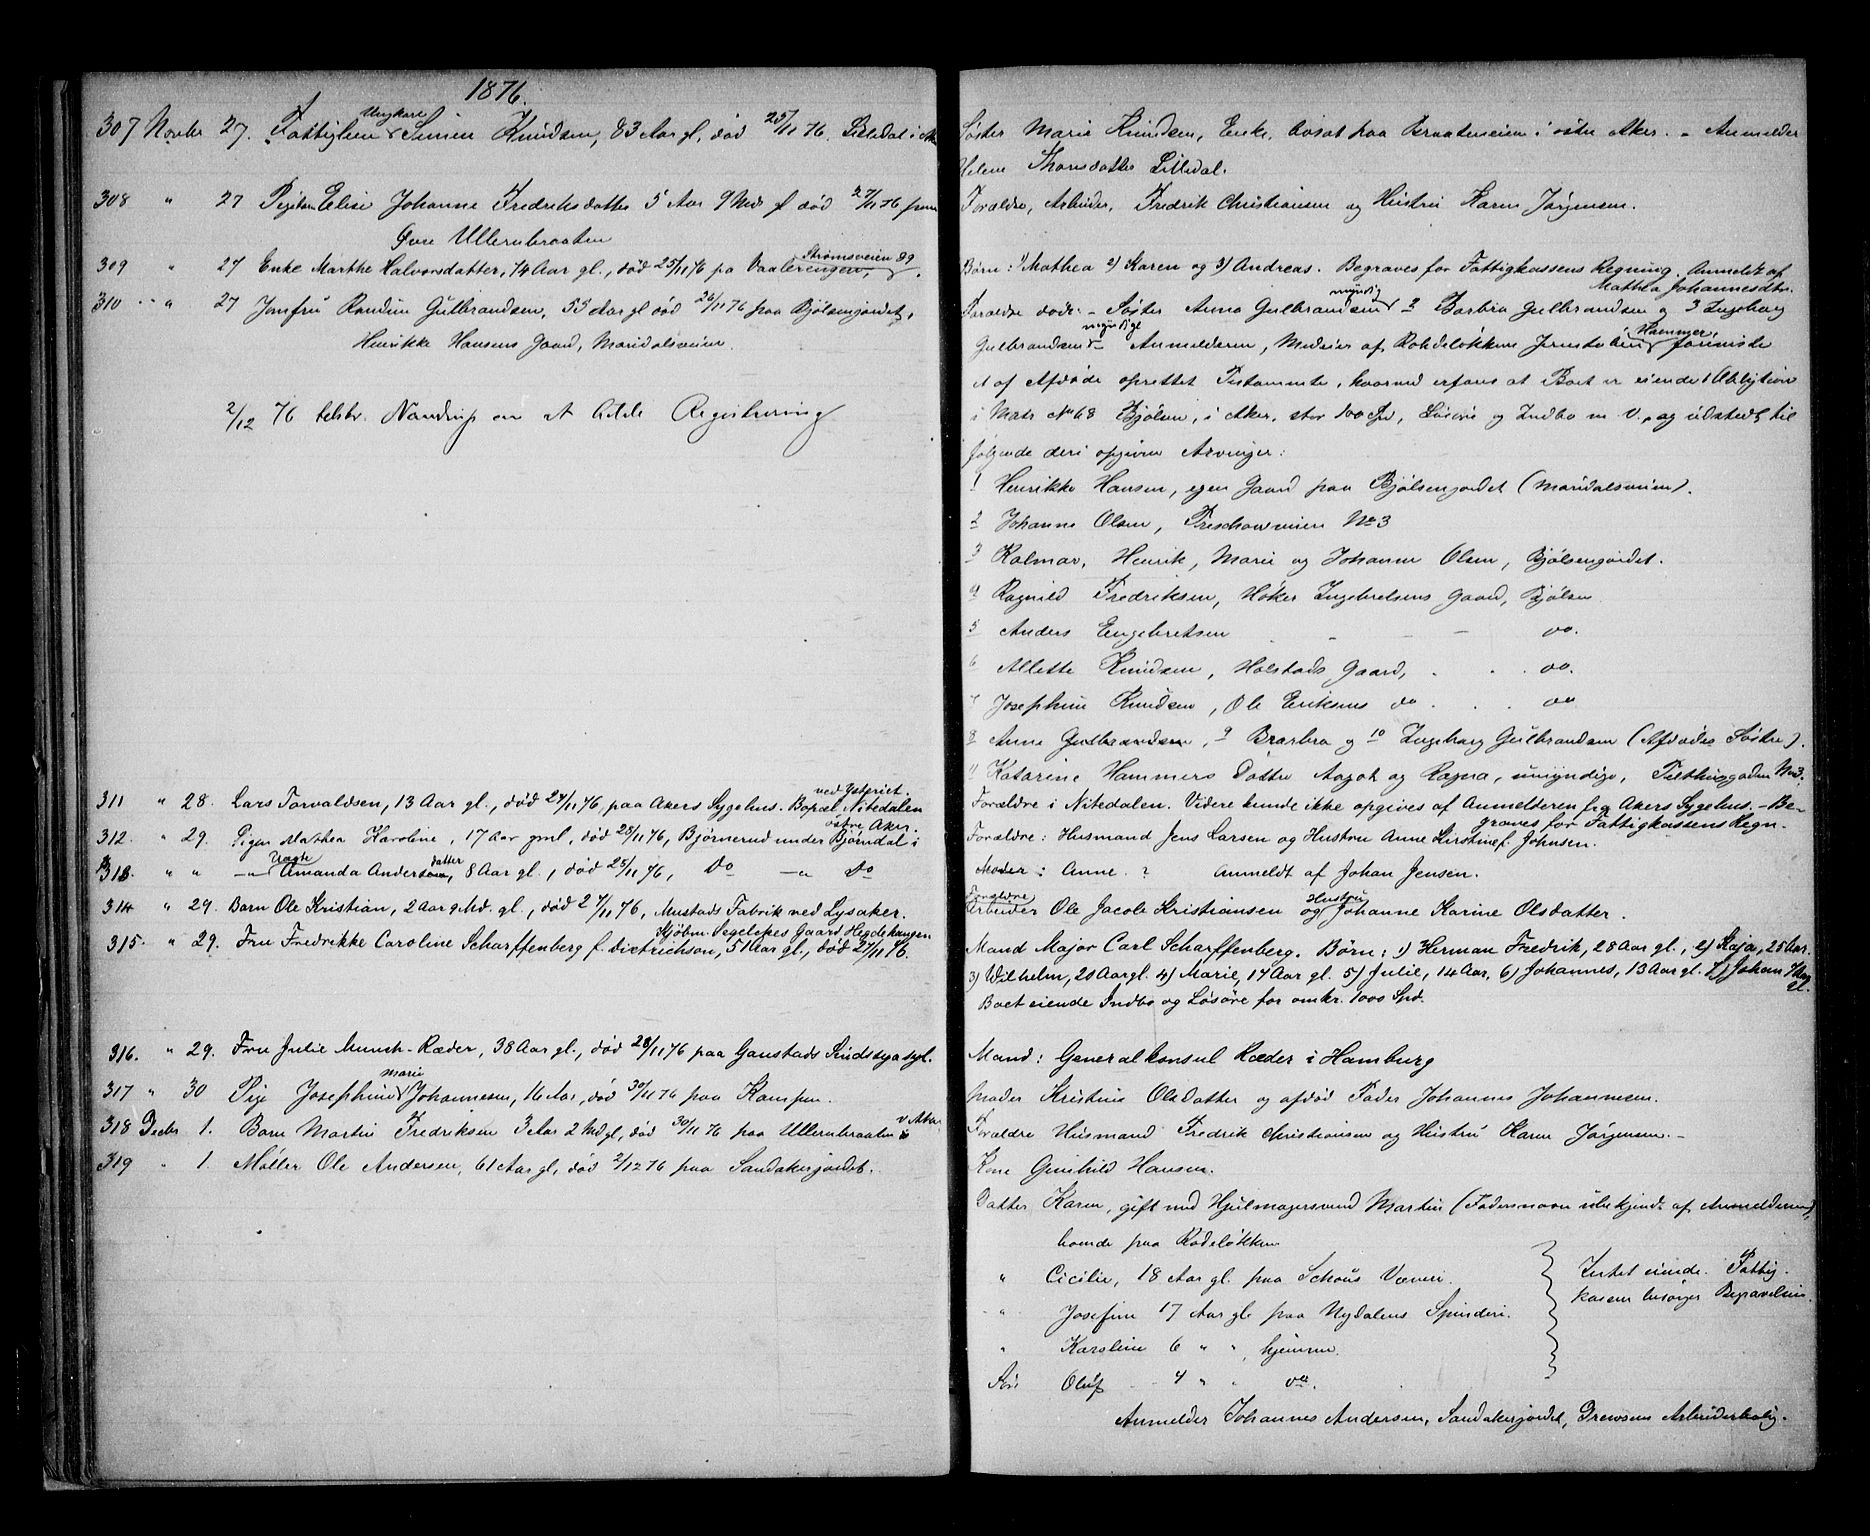 1876.
307 Novbr 27. Fattiglem Ungkarl Simen Knudsen, 83 Aar gl, død 25/11 76. Lilledal i Aker
308 " 27 Pigebarn Elise Johanne Fredriksdatter 5 Aar 9 Md gl død 27/11 76 paa
Øvre Ullernbraaten
309 " 27 Enke Marthe Halvorsdatter, 74 Aar gl., død 25/11 76 pa Vaalerengen, Strømsveien 29.
310 " 27 Jomfru Randine Gulbrandsen, 53 Aar gl død 26/11 76 paa Bjølsenjordet,
Henrikke Hansens Gaard, Maridalsveien.
2/12 76 telebr. Nandrup om at holde Registrering
311 " 28. Lars Torvaldsen, 13 Aar gl., død 24/11 76, paa Akers Sygehus. Bopæl Nitedalen
ved Ysteriet.
312. " 29. Pigen Mathea Karoline, 17 aar gml, død 25/11 76, Bjørnerud under Bjørndal i
østre Aker.
313. " " —" Amanda Andersdatter, 8 Aar gl., død 25/11 76, Do —" Do
314 " 29. Barn Ole Kristian, 2 Aar 9 Md. gl., død 27/11 76, Mustads Fabrik ved Lysaker.
315. " 29. Fru Fredrikke Caroline Scharffenberg f. Dietrichson, 51 Aar gl., død 27/11 76.
Kjøbm. Segelckes Gaard Hegdehaugen
316. " 29. Fru Julie Munch-Ræder, 38 Aar gl., død 28/11 76 paa Gaustads Sindssygeasyl.
317 " 30 Pige Josephine Marie Johannesen, 16 Aar, død 30/11 76 paa Kampen.
318 Decbr 1. Barn Martin Fredriksen 3 Aar 2 Md gl, død 30/11 76 paa Ullernbraaten i V. Aker
319 " 1. Møller Ole Andersen, 61 Aar gl, død 2/12 76 paa Sandakerjordet.
Søster Marie Knudsen, Enke, bosat paa Braateneien i østre Aker. - Anmelder
Helene Thorsdatter Lilledal.
Forældre, Arbeider, Fredrik Christiansen og Hustru Karen Jørgensen.
Børn: 1) Mathea 2) Karen og 3) Andreas. Begraves for Fattigkassens Regning. Anmeldt af
Mathea Johannesdtr.
Forældre døde. - Søster Anna Gulbrandsen myndig 2 Barbra Gulbrandsen og 3 Ingeborg
Gulbrandsen myndige - Anmelderen, Medeier af Rohdeløkkens Jernstøberi Hammer, foreviste
et af Afdøde oprettet Testamente, hvorved erfares at Boet er eiende 1 Obligtion
i Matr No 68 Bjølsen, i Aker, stor 100 Spd, Løsøre og Indbo m. V., og udstedt til
følgende deri opgivne Arvinger:
1 Henrikke Hansen, egen Gaard paa Bjølsenjordet (Maridalsveien).
2 Johanne Olsen, Treschowsveien No 3
3 Kalmar, Henrik, Marie og Johanne Olsen, Bjølsenjordet.
4 Ragnild Fredriksen, Høker Ingebretsens Gaard, Bjølsen
5 Anders Engebretsen - - do.
6 Allette Knudsen, Holstads Gaard, . . do.
7 Josephine Knudsen, Ole Eriksens do . . do
8 Anne Gulbrandsen, 9 Brarbra og 10 Ingeborg Gulbrandsen (Afdødes Søstre).
11 Katarine Hammers Døttre Aagot og Ragna, umyndige, Tilthuggaden No 3.
Forældre i Nitedalen. Videre kunde ikke opgives af Anmelderen fra Akers Sygehus. - Be-
graves for Fattigkassens Regn.
Forældre: Husmand Jens Larsen og Hustru Anne Kirstine f. Johnsen.
Moder: Anne. ? Anmeldt af Johan Jensen.
Forældre Arbeider Ole Jacob Kristiansen og Hustru Johanne Karine Olsdatter.
Mand Major Carl Scharffenberg. Børn: 1) Herman Fredrik, 28 Aar gl., 2) Kaja, 25 Aar.
3) Wilhelm, 20 Aar gl. 4) Marie, 17 Aar gl. 5) Julie, 14 Aar, 6) Johannes, 13 Aar gl. 7) Johan 7 Aar gl.
Boet eiende Indbo og Løsøre for omkr. 1000 Spd.
Mand: Generalkonsul Ræder i Hamburg
Moder Kristine Olsdatter og afdød Fader Johannes Johannesen.
Forældre Husmand Fredrik Christiansen og Hustru Karen Jørgensen. -
Kone Gunhild Hansen.
Datter Karen, gift med Hjulmagersvend Martin (Fadersnavn ubekjendt af Anmelderen),
boende paa Rodeløkken
" Cicilie, 18 Aar gl. paa Schous Væveri.
Intet eiende. Fattig-
kassen besørger Begravelsen.
" Josefine 17 Aar gl. paa Nydalens Spinderi.
" Karoline 6 " ", hjemme.
Søn Oluf 4 " " do.
Anmelder Johannes Andersen, Sandakerjordet, Drewsens Arbeiderbolig.